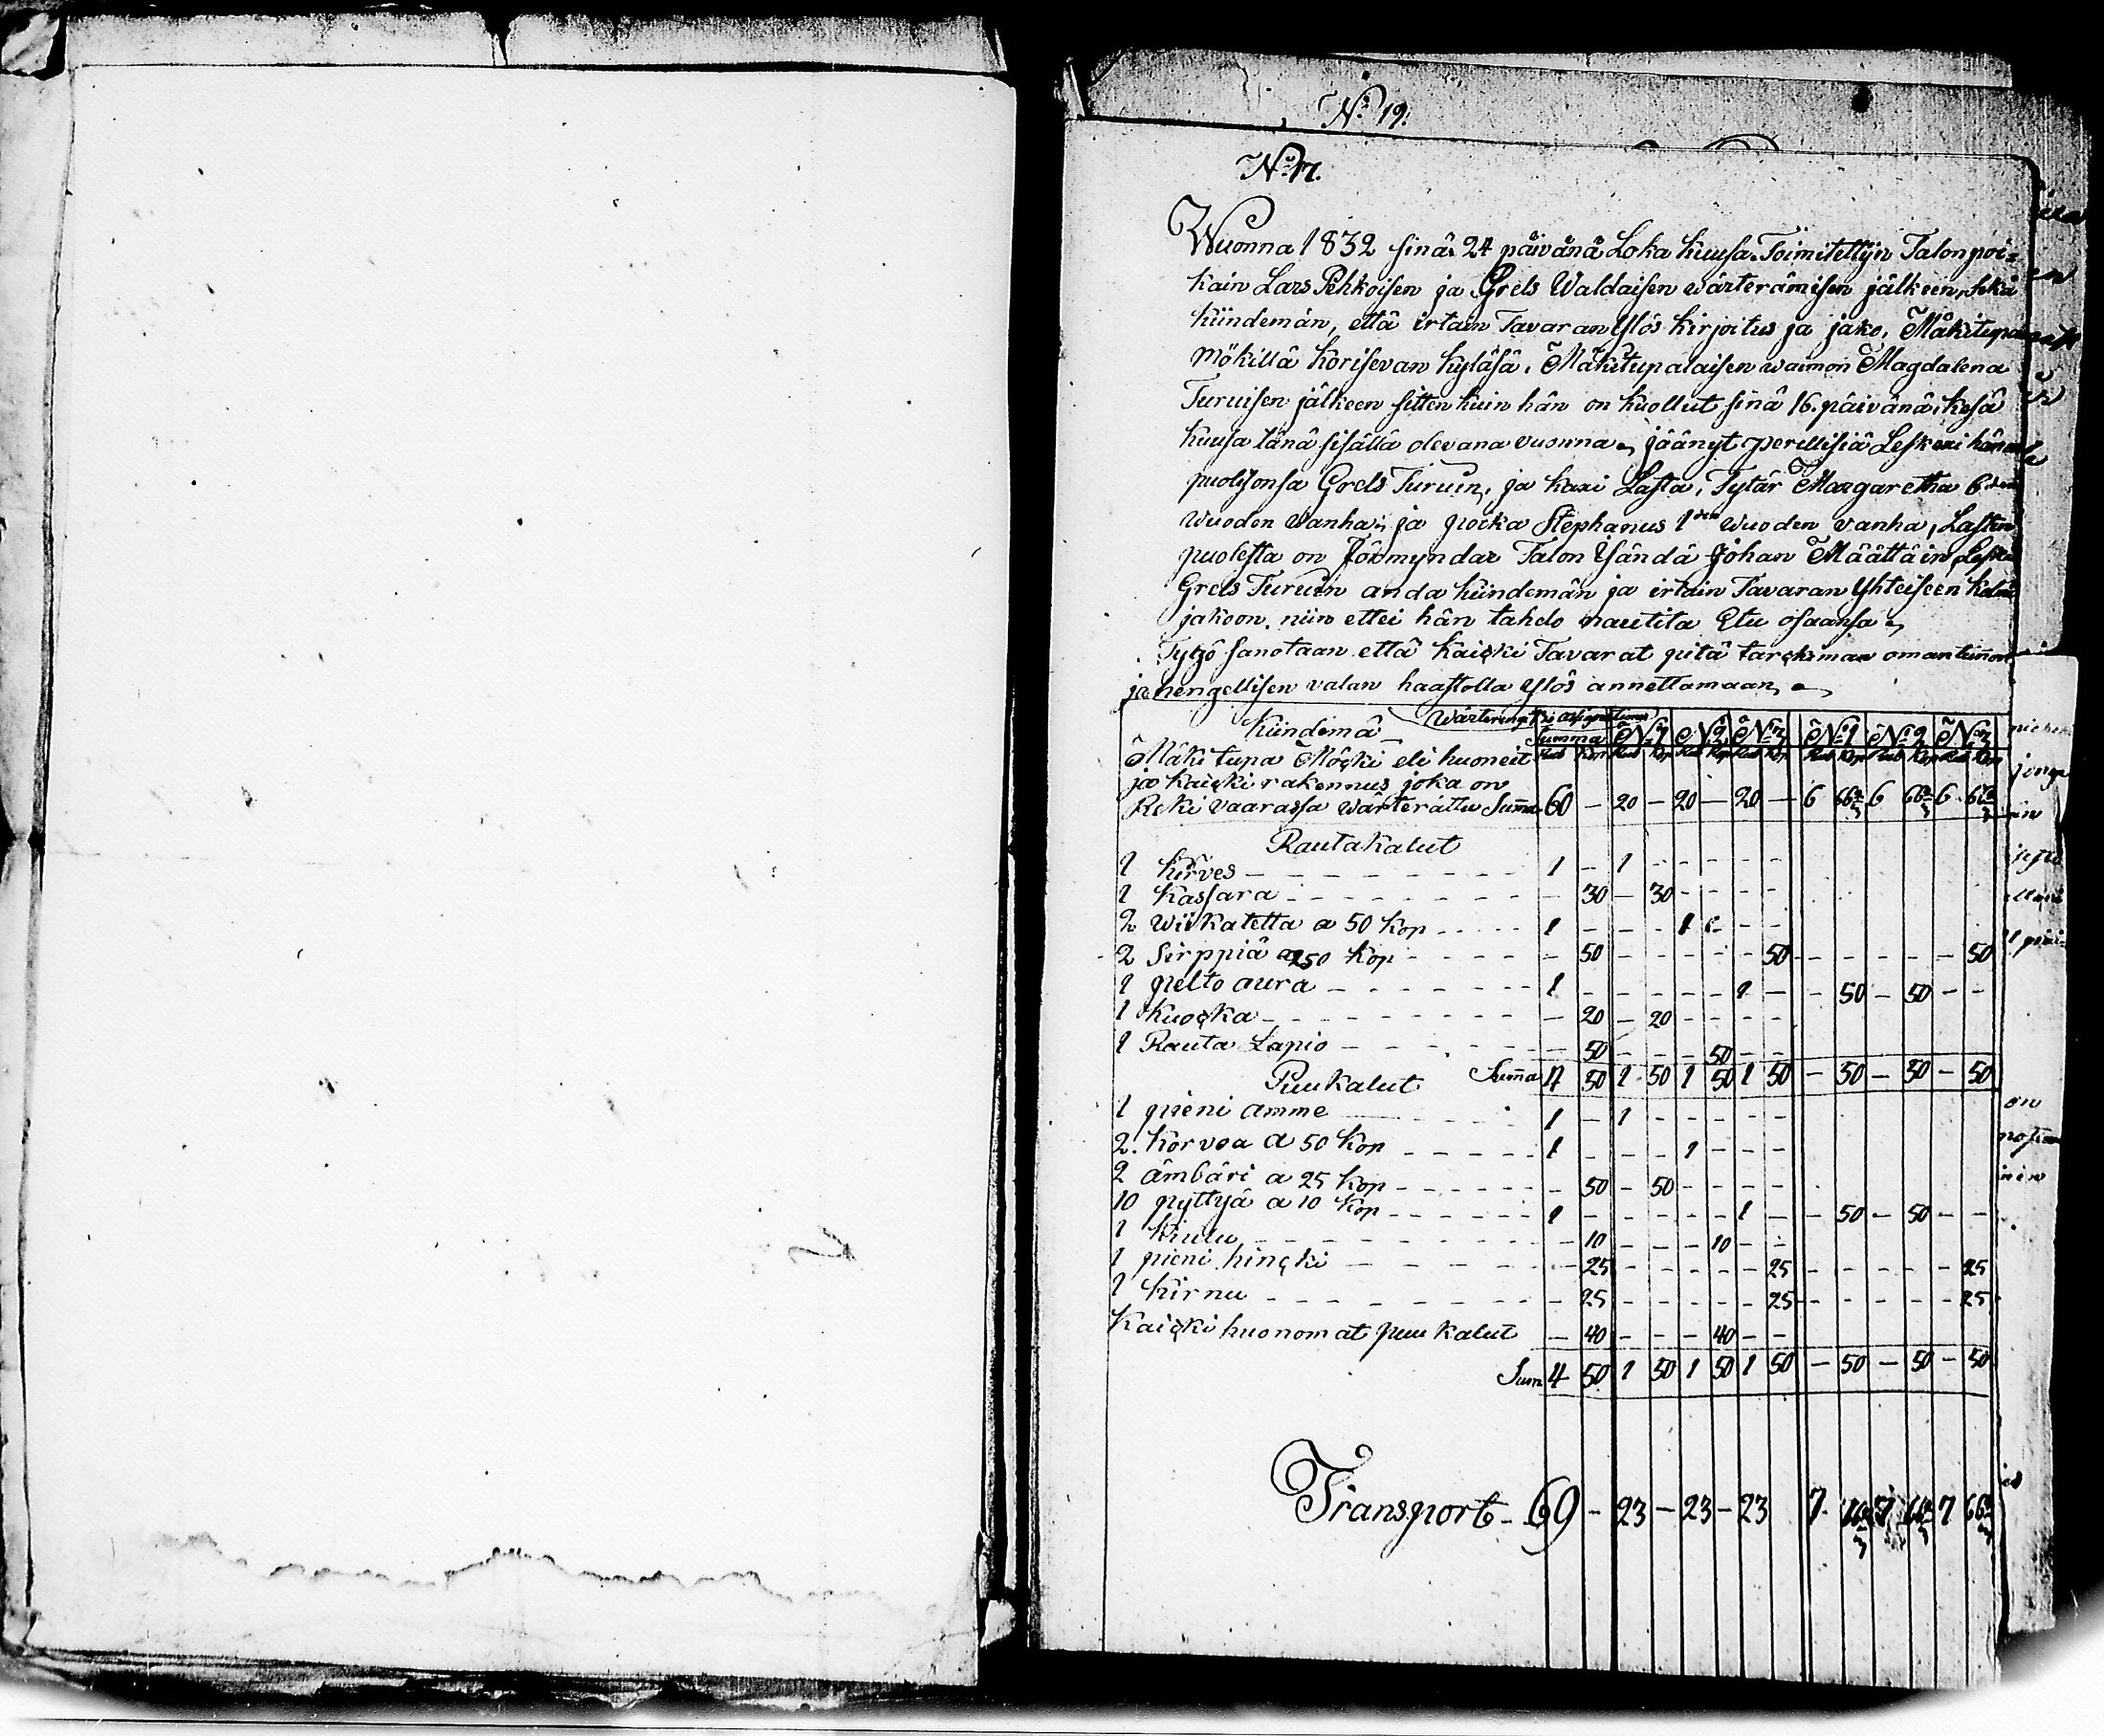 No 19.
No 17.
Wuonna 1832 sinä 24 päivänä Loka kuusa Toimitettijn Talonpoi=
kain Lars Pehkoisen ja Grels Waldaisen wärterämisen jälkeen, sekä
kiindemän, että irtain Tavaran Ylös kirjoitus ja jako, Mäkitupa
mökillä Korisevan kyläsä, Mäkitupalaisen waimon Magdalena
Turuisen jälkeen sitten kuin hän on kuollut sinä 16. päivänä kesä
kuusa tänä sisällä olevana vuonna, jäänyt perillisiä Leskexi hänen
puolisonsa Grels Turuin, ja kaxi Lasta, Tytär Margaretha 6 den
wuoden vanha, ja poika Stephanus 1 den wuoden vanha, Lasten
puolesta on Förmyndar Talon Isändä Johan Määttäin, Leski
Grels Turuin anda kiindemän ja irtain Tavaran Yhteiseen
jakoon, niin ettei hän tahdo nautita Etu osaansa,
Tyÿö sanotaan että kaicki Tavarat pitä tarckiman omantunnon
ja hengellisen valan haastolla Ylös annettamaan,
Kiindemä Wärteringi Rb assignationer
Summa No 1 No 2 No 3 No 1 No 2 No 3
Rub Kop Rub Kop Rub Kop Rub Kop Rub Kop Rub Kop Rub Kop
Mäki tupa Möcki eli huoneit
ja kaicki rakennus joka on
Reki vaarassa wärterättu Summa 60 — 20 — 20 — 20 — 6 66 2/3 6 66 2/3 6 66 2/3
Rautakalut
1 Kirves - - - 1 - 1 - - - - -
1 Kassara - - - - 30 - 30 - - - -
2 Wiikatetta a 50 Kop - - - 1 - - - 1 - - -
2 Sirppiä a 250 Kop - - - - 50 - - - - - 50 - - - - - 50
1 pelto aura - - - 1 - - - - - 1 - - 50 - 50 - -
1 Kuocka - - - - 20 - 20 - - - -
1 Rauta Lapio - - - - 50 - - - 50 - -
Puukalut Summa 4 50 1 50 1 50 1 50 - 50 - 50 - 50
1 pieni amme - - - 1 - 1 - - - - -
2. Korvea a 50 Kop - - - 1 - - - 1 - - -
2 ämbäri a 25 Kop - - - - 50 - 50 - - - -
10 pyttyä a 10 Kop - - - 1 - - - - - 1 - - 50 - 50 - -
1 Kiulu - - - - 10 - - - 10 - -
1 pieni hincki - - - - 25 - - - - - 25 - - - - - 25
1 Kirnu - - - - 25 - - - - - 25 - - - - - 25
Kaicki huonomat puu kalut - 40 - - - 40 - -
Sum 4 50 1 50 1 50 1 50 - 50 - 50 - 50
Transport - 69 - 23 - 23 - 23 7 66 2/3 7 66 2/3 7 66 2/3